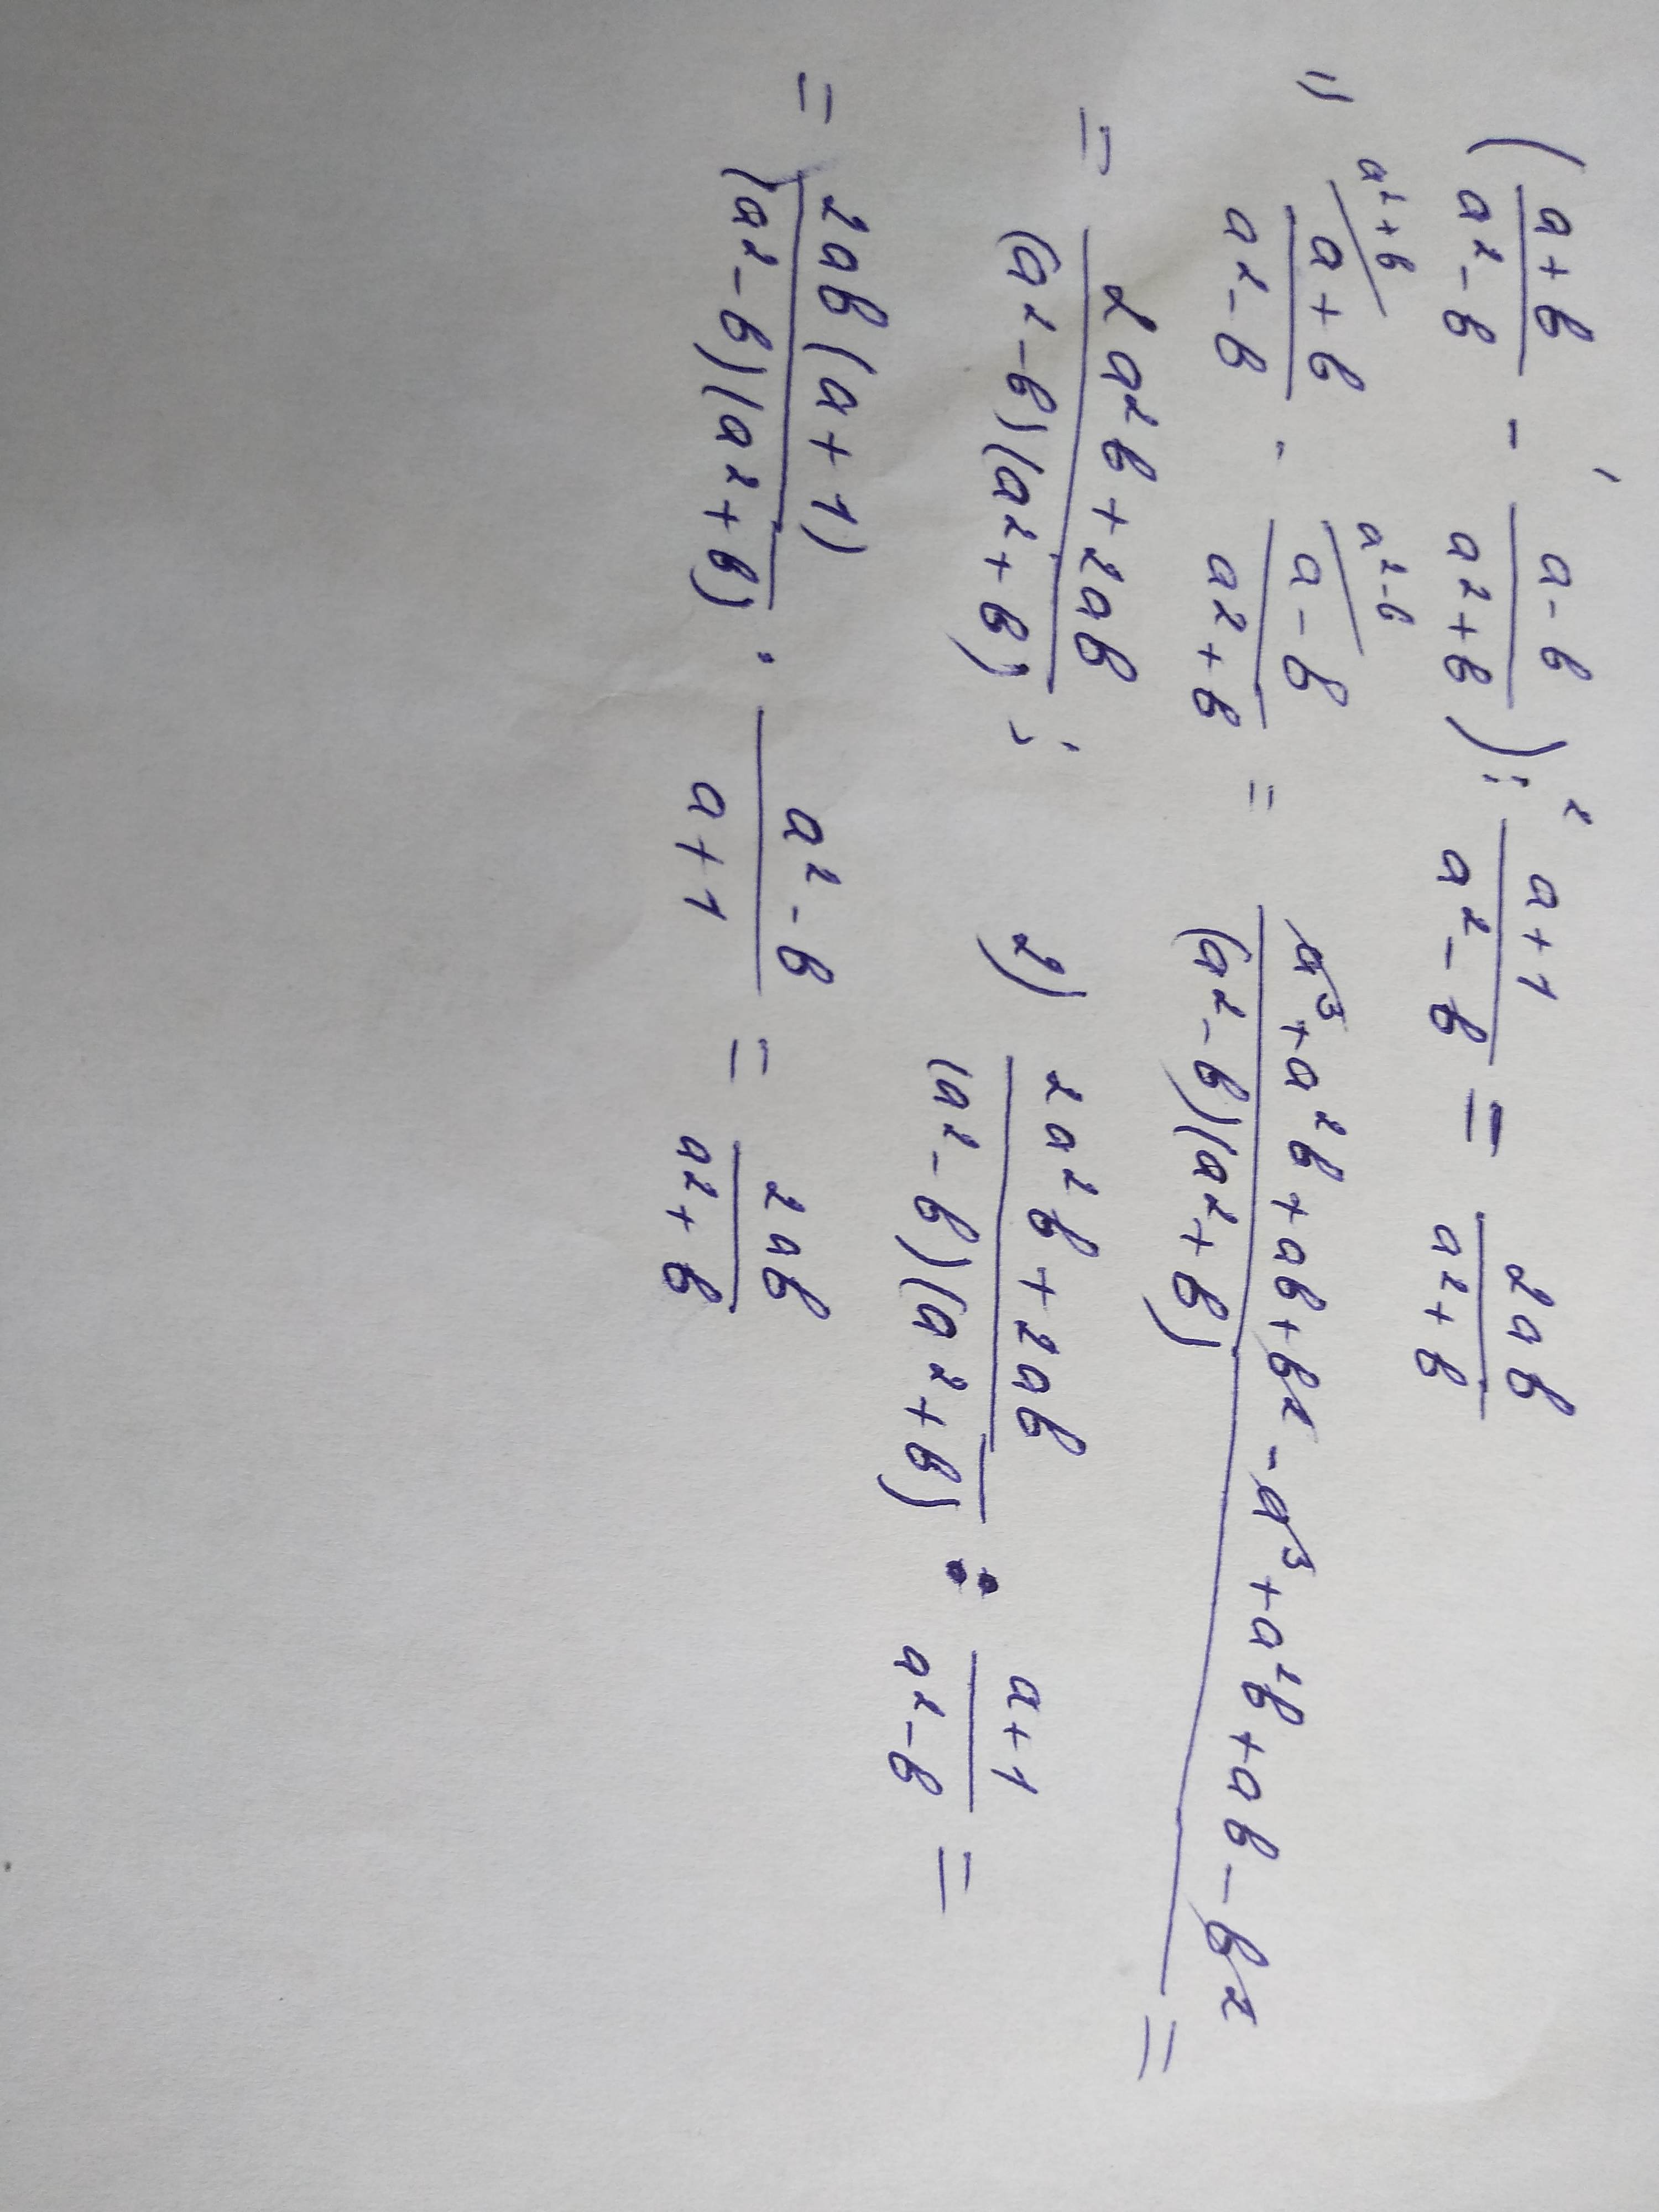 (a+b/a²-b - a-b/a²+b) : a+1/a²-b = 2ab/a²+b
1) a+b/a²-b (a²+b - a-b/a²+b (a²-b = a³+a²b+ab+b²-a³+a²b+ab-b²/(a²-b)(a²+b) =
= 2a²b+2ab/(a²-b)(a²+b) ; 2) 2a²b+2ab/(a²-b)(a²+b) : a+1/a²-b =
= 2ab(a+1)/(a²-b)(a²+b) · a²-b/a+1 = 2ab/a²+b